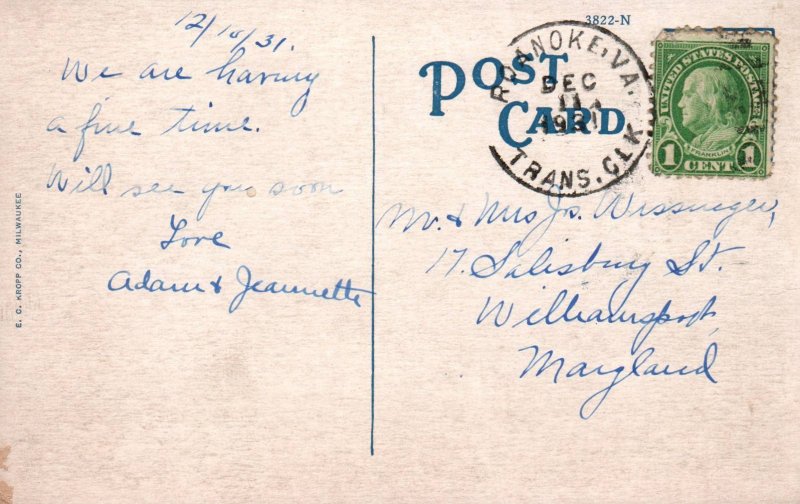 12/10/31.
We are having
a fine time.
Will see you soon
Love
Adam & Jeannette
E. C. KROPP CO., MILWAUKEE
3822-N
POST
CARD
ROANOKE, VA.
DEC
11
1931
TRANS. CLK.
UNITED STATES POSTAGE
FRANKLIN
1 CENT 1
Mr. & Mrs Js.
17 Salisbury St.
Williamsport,
Maryland